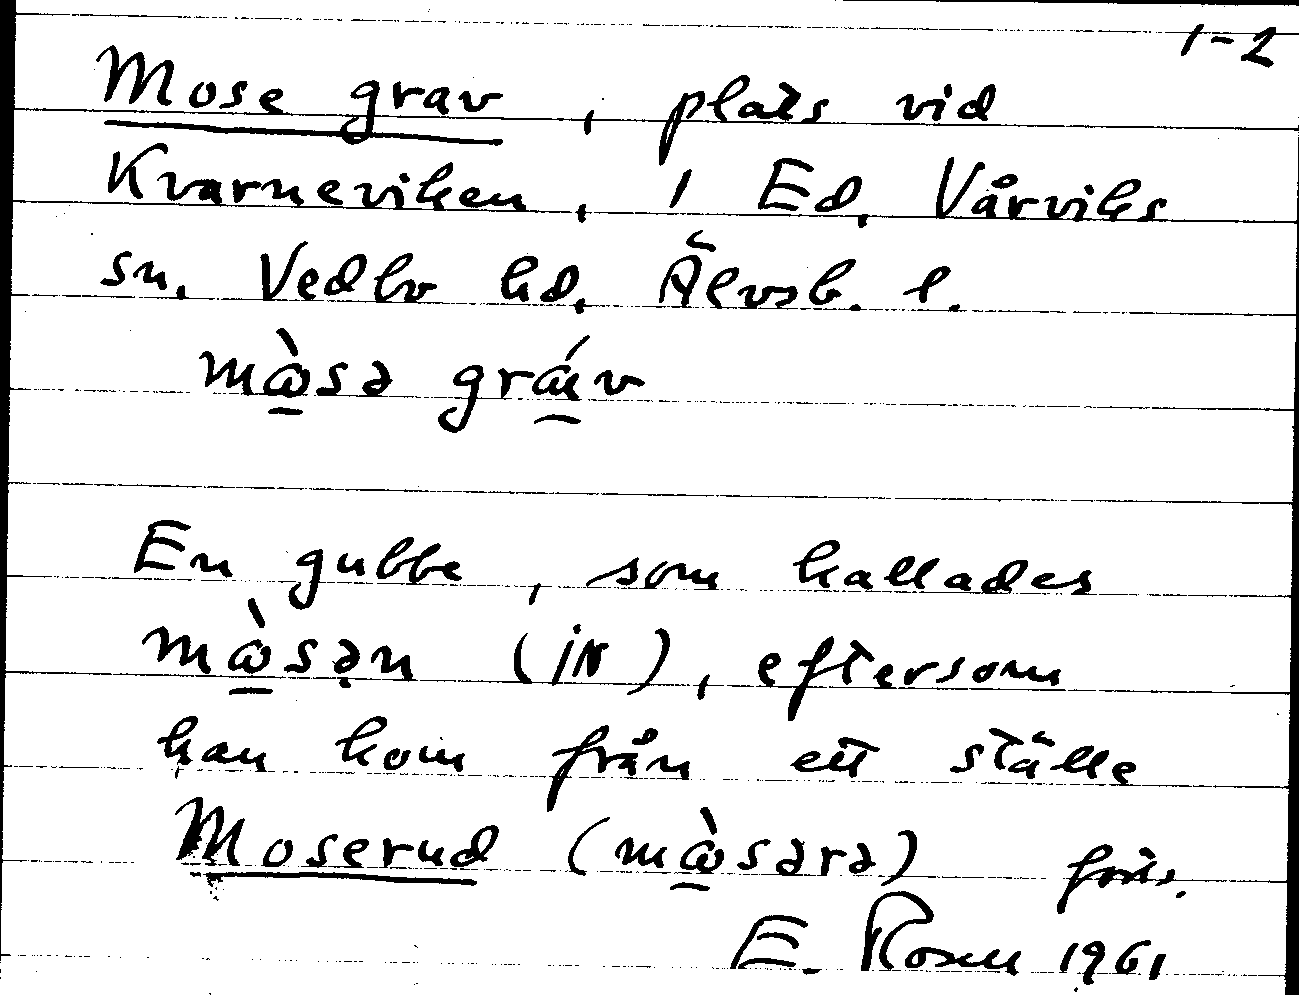 1-2
Mose grav, plats vid
Kvarneviken, 1 Ed, Vårviks
sn. Vedbo hd, Älvsb. l.
mὼsə grάv
En gubbe, som kallades
mὼsən (IN), eftersom
han kom från ett ställe
Moserud (mὼsərə) forts.
E. Rosell 1961